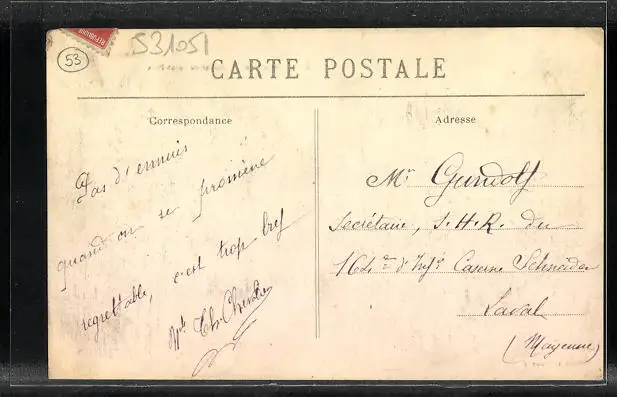 53
531051
CARTE POSTALE
Correspondance
Adresse
Pas d'ennuis
quand on se promène
regrettable, c'est trop bref
Mr
Secrétaire, S.H.R. du
d'Infie Caserne Schneider
Laval
(Mayenne)